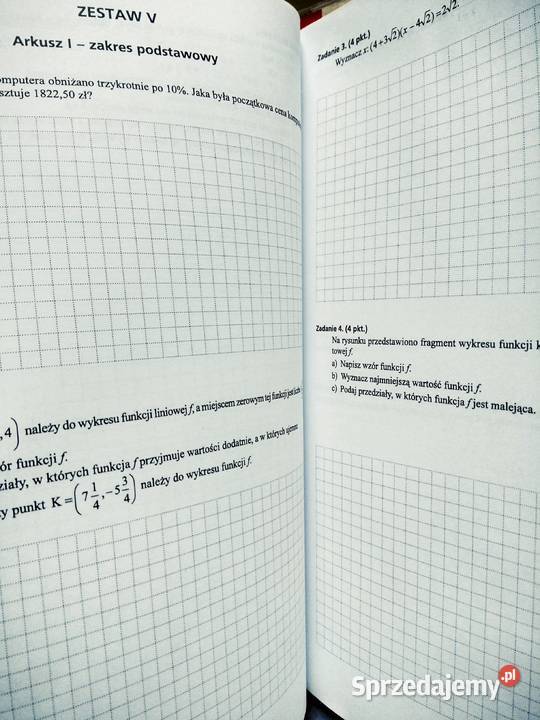 ZESTAW V
Arkusz I – zakres podstawowy
omputera obniżano trzykrotnie po 10%. Jaka była początkowa cena
sztuje 1822,50 zł?
,4) należy do wykresu funkcji liniowej f, a miejscem zerowym tej funkcji jest
ór funkcji f.
ziały, w których funkcja f przyjmuje wartości dodatnie, a w których ujemne
y punkt K = (7 1/4, –5 3/4) należy do wykresu funkcji f.
Zadanie 3. (4 pkt.)
Wyznacz x: (4+3√2)(x–4√2)=2√2.
Zadanie 4. (4 pkt.)
Na rysunku przedstawiono fragment wykresu funkcji k
towej f.
a) Napisz wzór funkcji f.
b) Wyznacz najmniejszą wartość funkcji f.
c) Podaj przedziały, w których funkcja f jest malejąca.
Sprzedajemy.pl